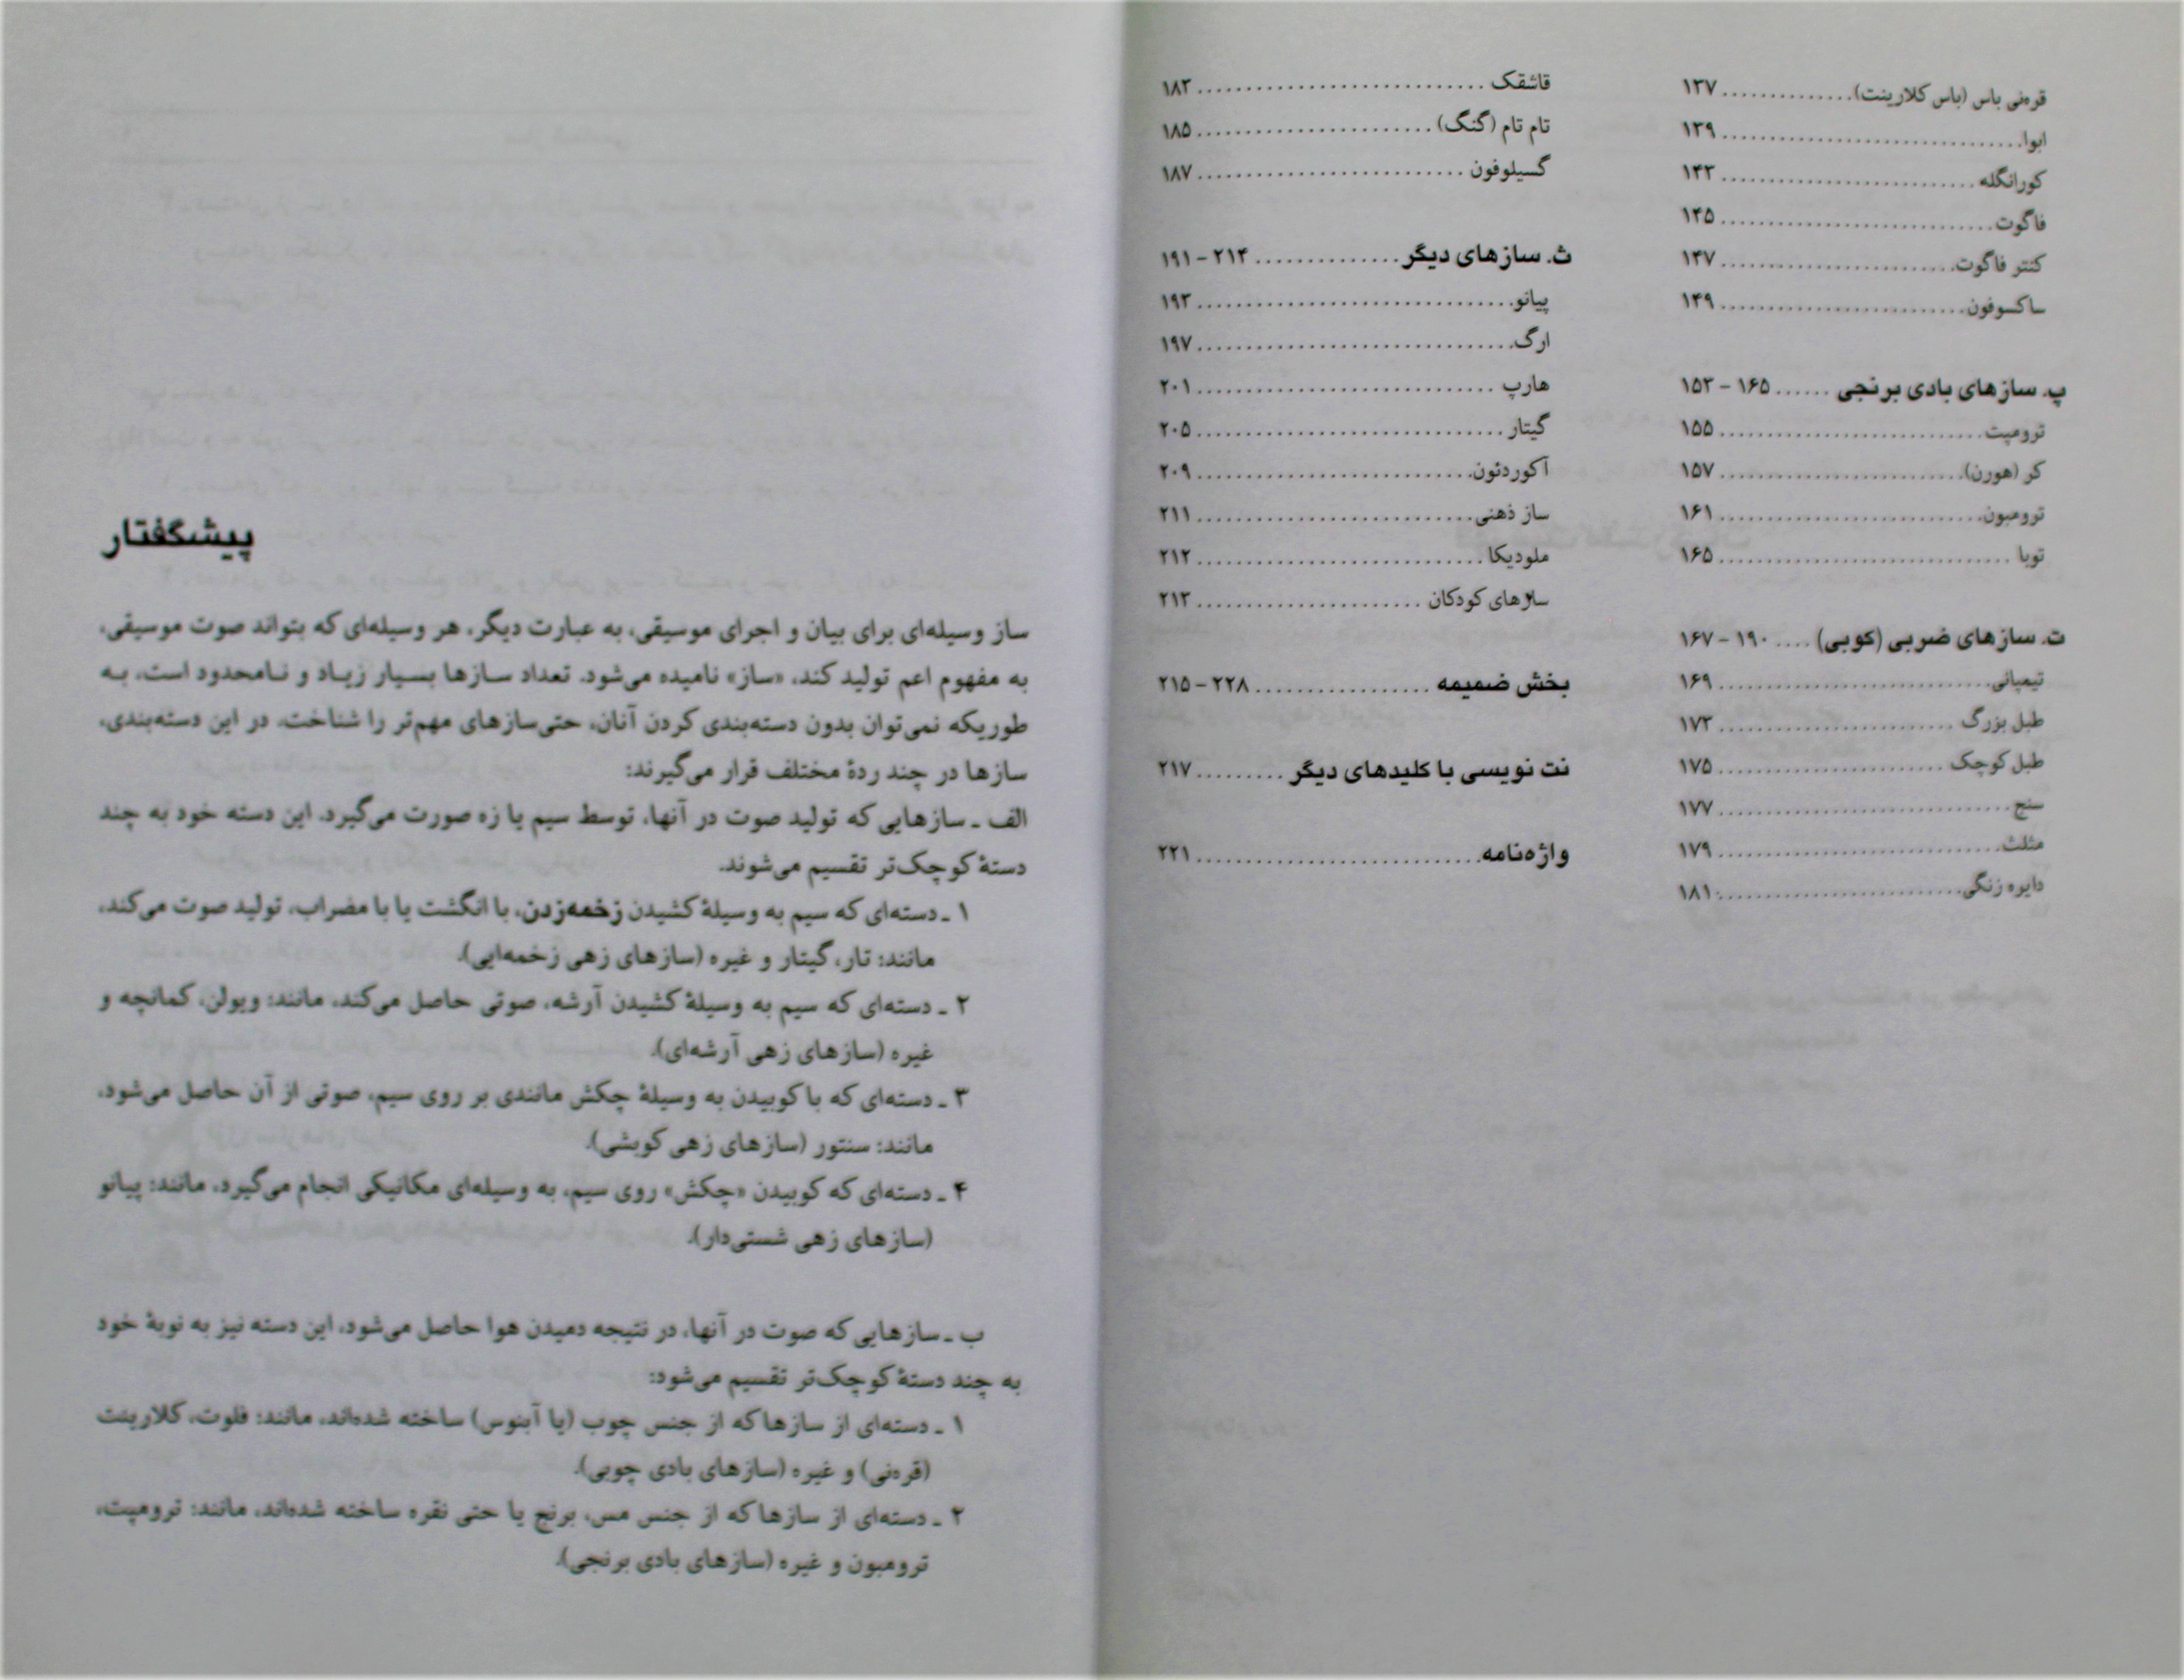 قره‌نی باس (باس کلارینت) .............. ۱۳۷
ابوا ................................ ۱۳۹
کورانگله ........................... ۱۴۳
فاگوت ............................. ۱۴۵
کنتر فاگوت ......................... ۱۴۷
ساکسوفون .......................... ۱۴۹
پ. سازهای بادی برنجی ...... ۱۶۵ - ۱۵۳
ترومپت ............................ ۱۵۵
کر (هورن) .......................... ۱۵۷
ترومبون ............................ ۱۶۱
توبا ............................... ۱۶۵
ت. سازهای ضربی (کوبی) .... ۱۹۰ - ۱۶۷
تیمپانی ............................. ۱۶۹
طبل بزرگ ......................... ۱۷۳
طبل کوچک ........................ ۱۷۵
سنج ............................... ۱۷۷
مثلث .............................. ۱۷۹
دایره زنگی .......................... ۱۸۱
قاشقک ............................. ۱۸۳
تام تام (گنگ) ......................... ۱۸۵
گسیلوفون ............................ ۱۸۷
ث. سازهای دیگر ............... ۲۱۴ - ۱۹۱
پیانو ................................. ۱۹۳
ارگ ................................. ۱۹۷
هارپ ................................ ۲۰۱
گیتار ................................. ۲۰۵
آکوردئون ............................. ۲۰۹
ساز ذهنی ............................. ۲۱۱
ملودیکا ............................... ۲۱۲
سازهای کودکان ........................ ۲۱۳
بخش ضمیمه .................. ۲۲۸ - ۲۱۵
نت نویسی با کلیدهای دیگر ......... ۲۱۷
واژه‌نامه .............................. ۲۲۱
پیشگفتار
ساز وسیله‌ای برای بیان و اجرای موسیقی، به عبارت دیگر، هر وسیله‌ای که بتواند صوت موسیقی،
به مفهوم اعم تولید کند، «ساز» نامیده می‌شود. تعداد سازها بسیار زیاد و نامحدود است، به
طوریکه نمی‌توان بدون دسته‌بندی کردن آنان، حتی‌سازهای مهم‌تر را شناخت. در این دسته‌بندی،
سازها در چند ردهٔ مختلف قرار می‌گیرند:
الف ـ سازهایی که تولید صوت در آنها، توسط سیم یا زه صورت می‌گیرد. این دسته خود به چند
دستهٔ کوچک‌تر تقسیم می‌شوند.
۱ ـ دسته‌ای که سیم به وسیلهٔ کشیدن زخمه‌زدن، با انگشت یا با مضراب، تولید صوت می‌کند،
مانند: تار، گیتار و غیره (سازهای زهی زخمه‌ایی).
۲ ـ دسته‌ای که سیم به وسیلهٔ کشیدن آرشه، صوتی حاصل می‌کند، مانند: ویولن، کمانچه و
غیره (سازهای زهی آرشه‌ای).
۳ ـ دسته‌ای که با کوبیدن به وسیلهٔ چکش مانندی بر روی سیم، صوتی از آن حاصل می‌شود،
مانند: سنتور (سازهای زهی کوبشی).
۴ ـ دسته‌ای که کوبیدن «چکش» روی سیم، به وسیله‌ای مکانیکی انجام می‌گیرد، مانند: پیانو
(سازهای زهی شستی‌دار).
ب ـ سازهایی که صوت در آنها، در نتیجه دمیدن هوا حاصل می‌شود، این دسته نیز به نوبهٔ خود
به چند دستهٔ کوچک‌تر تقسیم می‌شود:
۱ ـ دسته‌ای از سازها که از جنس چوب (یا آبنوس) ساخته شده‌اند، مانند: فلوت، کلارینت
(قره‌نی) و غیره (سازهای بادی چوبی).
۲ ـ دسته‌ای از سازها که از جنس مس، برنج یا حتی نقره ساخته شده‌اند، مانند: ترومپت،
ترومبون و غیره (سازهای بادی برنجی).